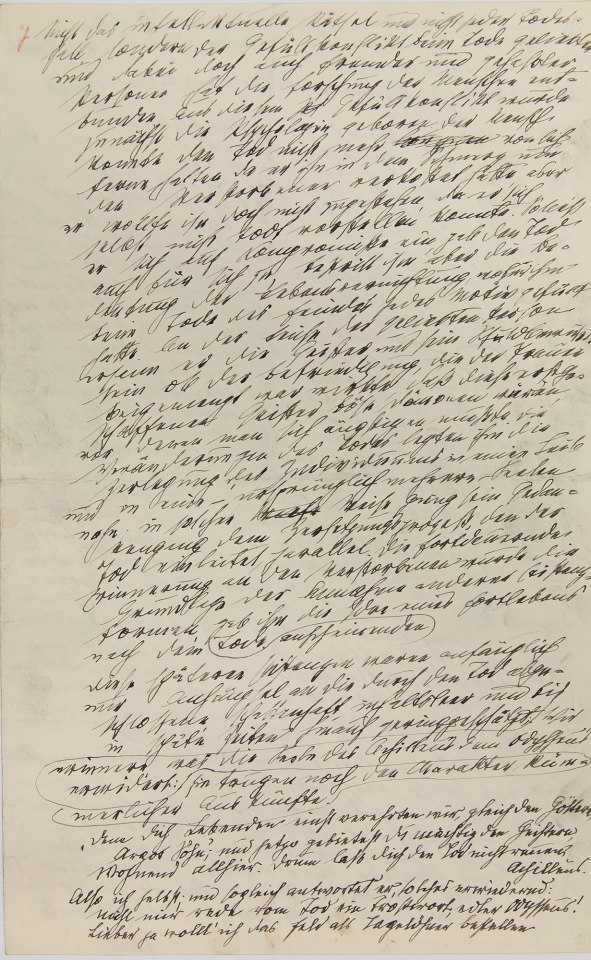 7 Nicht das intellektuelle Rätsel und nicht jeder Todes-
fall, sondern der Gefühlskonflikt beim Tode geliebter
und dabei doch auch fremder und gehaßter
Personen hat die Forschung der Menschen ent-
bunden. Aus diesem Gefühlskonflikt wurde
zunächst die Psychologie geboren. Der Mensch
konnte den Tod nicht mehr von sich
ferne halten, da er ihn in dem Schmerz um
den Verstorbenen verkostet hatte, aber
er wollte ihn doch nicht zugestehen, da er sich
selbst nicht tod vorstellen konnte. So ließ
er sich auf Kompromisse ein, gab den Tod
auch für sich zu, bestritt ihm aber die Be-
deutung der Lebensvernichtung, wofür ihm
beim Tode des Feindes jedes Motiv gefehlt
hatte. An der Leiche der geliebten Person
ersann er die Geister, und sein Schuldbewußt-
sein ob der Befriedigung, die der Trauer
beigemengt war, bewirkte, daß diese erstge-
schaffenen Geister böse Dämonen wurden,
vor denen man sich ängstigen mußte. Die
Veränderungen des Todes legten ihm die
Zerlegung des Individuums in einen Leib
und in eine – ursprünglich mehrere – Seelen
nahe; in solcher Weise ging sein Gedan-
kengang dem Zersetzungsprozeß, den der
Tod einleitet, parallel. Die fortdauernde
Erinnerung an den Verstorbenen wurde die
Grundlage der Annahme anderer Existenz-
formen, gab ihm die Idee eines Fortlebens
nach dem Tode.
Diese späteren Existenzen waren anfänglich
nur Anhängsel an die durch den Tod abge-
schlossene, schattenhaft, inhaltsleer und bis
in späte Zeiten hinauf geringgeschätzt. Wir
erinnern, was die Seele des Achilleus dem Odysseus
erwidert: sie trugen noch den Charakter küm-
merlicher Auskünfte.
„Denn dich Lebenden einst verehrten wir, gleich den Göttern,
Argos Söhn', und jetzo gebietest du mächtig den Geistern
Wohnend allhier. Drum laß dich den Tod nicht reuen,
Achilleus.
Also ich selbst; und sogleich antwortet' er, solches erwiedernd:
Nicht mir rede vom Tod ein Trostwort, edler Odysseus!
Lieber ja wollt' ich das Feld als Tagelöhner bestellen